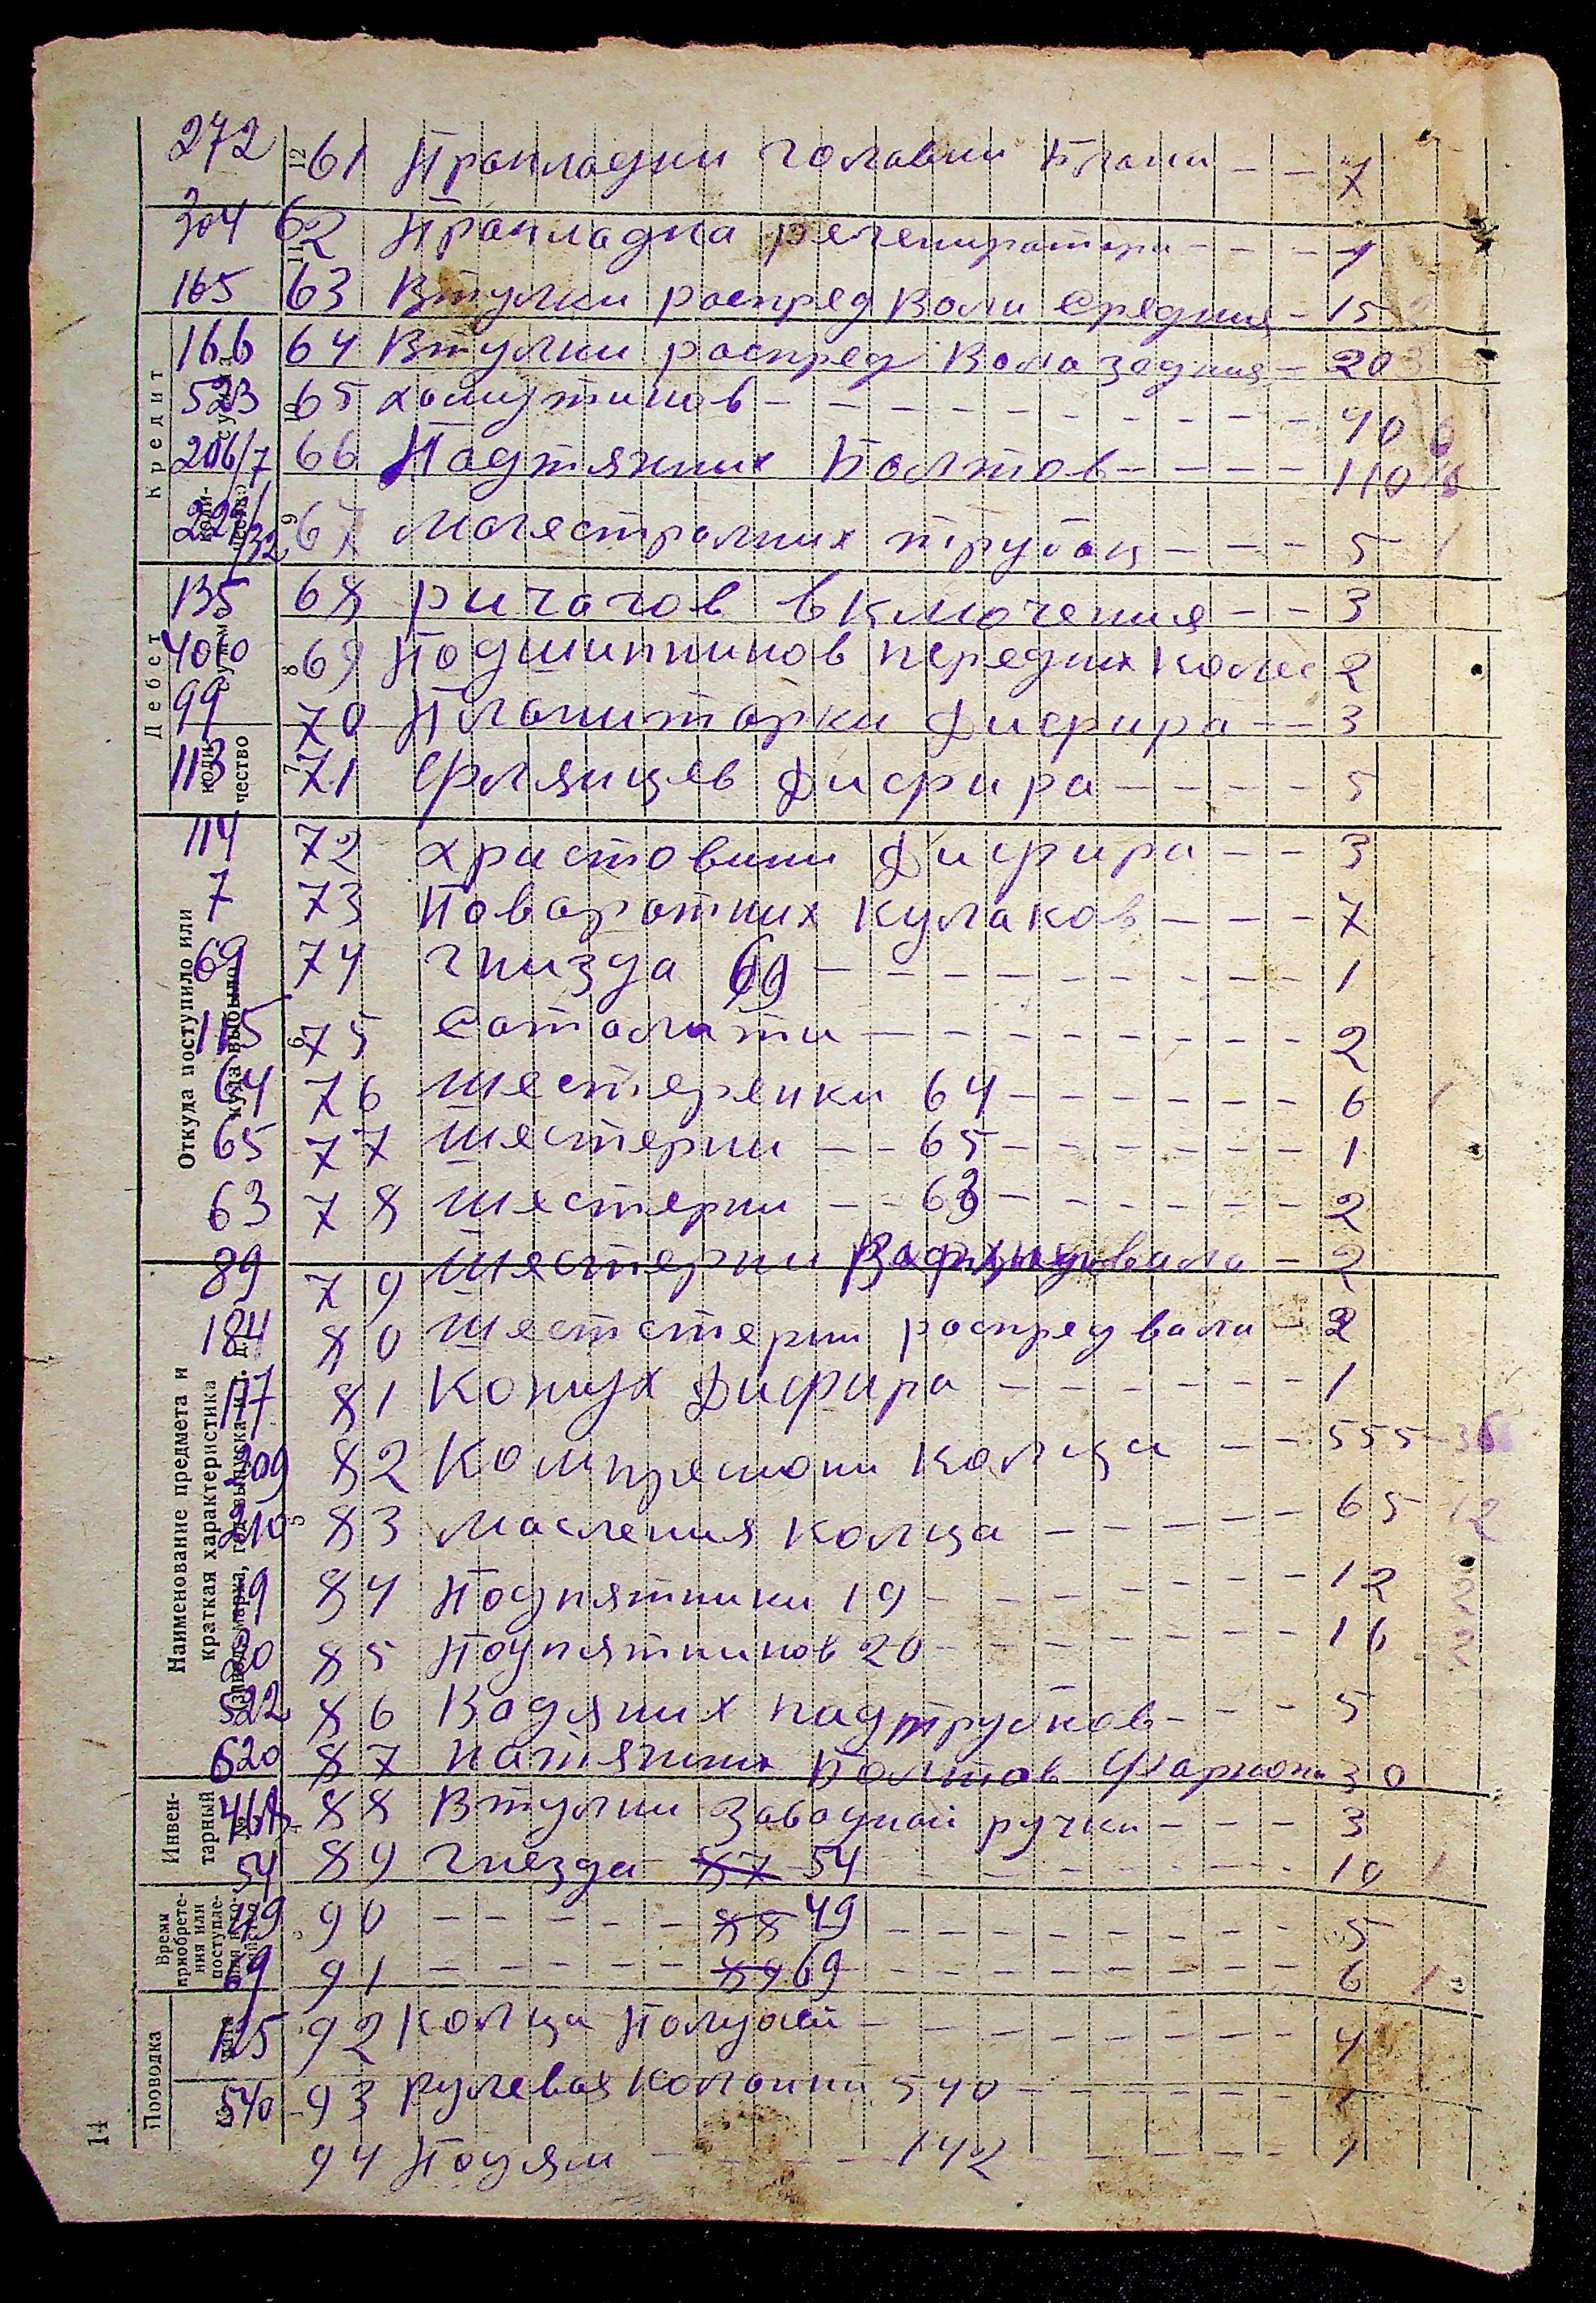 272 61 Пракладки головки Блока - - 7
304 62 Пракладка регениратора - - - 1
165 63 Втулки распред Вали средния - 15
166 64 Втулки распред Вала задния - 20
523 65 хомутиков - - - - - - - - - 40
206/7 66 Подтяжних Болтов - - - - 110
221/32 67 Могестралних трубок - - - 5
135 68 ричагов включения - - 3
400 69 Подшипников передних колес 2
99 70 Планитарки Дифира - - 3
113 71 Флянцев Дифира - - - - 5
114 72 храстовини Дифира - - 3
7 73 Поваротних кулаков - - - 7
69 74 гнизда 69 - - - - - - - - 1
115 75 Сатолити - - - - - - - - 2
64 76 Шестеренки 64 - - - - - - 6
65 77 Шестерни - - 65 - - - - - - 1
63 78 Шестерни - - 63 - - - - - - 2
89 79 Шестерни вала - 2
184 80 Шестстерни распред вали - 2
117 81 Кожух Дифира - - - - - - 1
209 82 Компресиони колца - - 555 - 36
210 83 Масления колца - - - - - 65 12
19 84 Подпятники 19 - - - - - - - 12
20 85 Подпятников 20 - - - - - - - 16 2
522 86 Водяних падтрубков - - - 5
620 87 натяжних Болтов 30
468 88 Втулки Заводнай ручки - - - 3
54 89 гнезда 87 54 - - - - - - 10
49 90 - - - - - 88 49 - - - - - - - 5
69 91 - - - - - 89 69 - - - - - - - 6
115 92 колца Полуосей - - - - - - - 4
540 93 рулевая колонки 540 - - - - - 1
94 Подям - - - - 142 - - - - - 1
Кредит
Дебет
коли-
чество
Откуда поступило или
куда выбыло
Наименование предмета и
краткая характеристика
Инвен-
тарный
Время
приобрете-
ния или
поступле-
Проводка
12
10
9
8
7
6
5
14